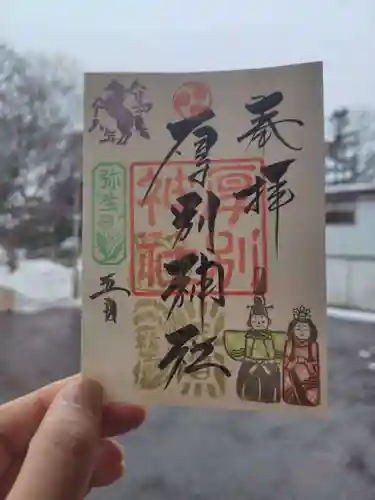 奉拝
厚別神社
厚別
神社
午年
弥生
五日